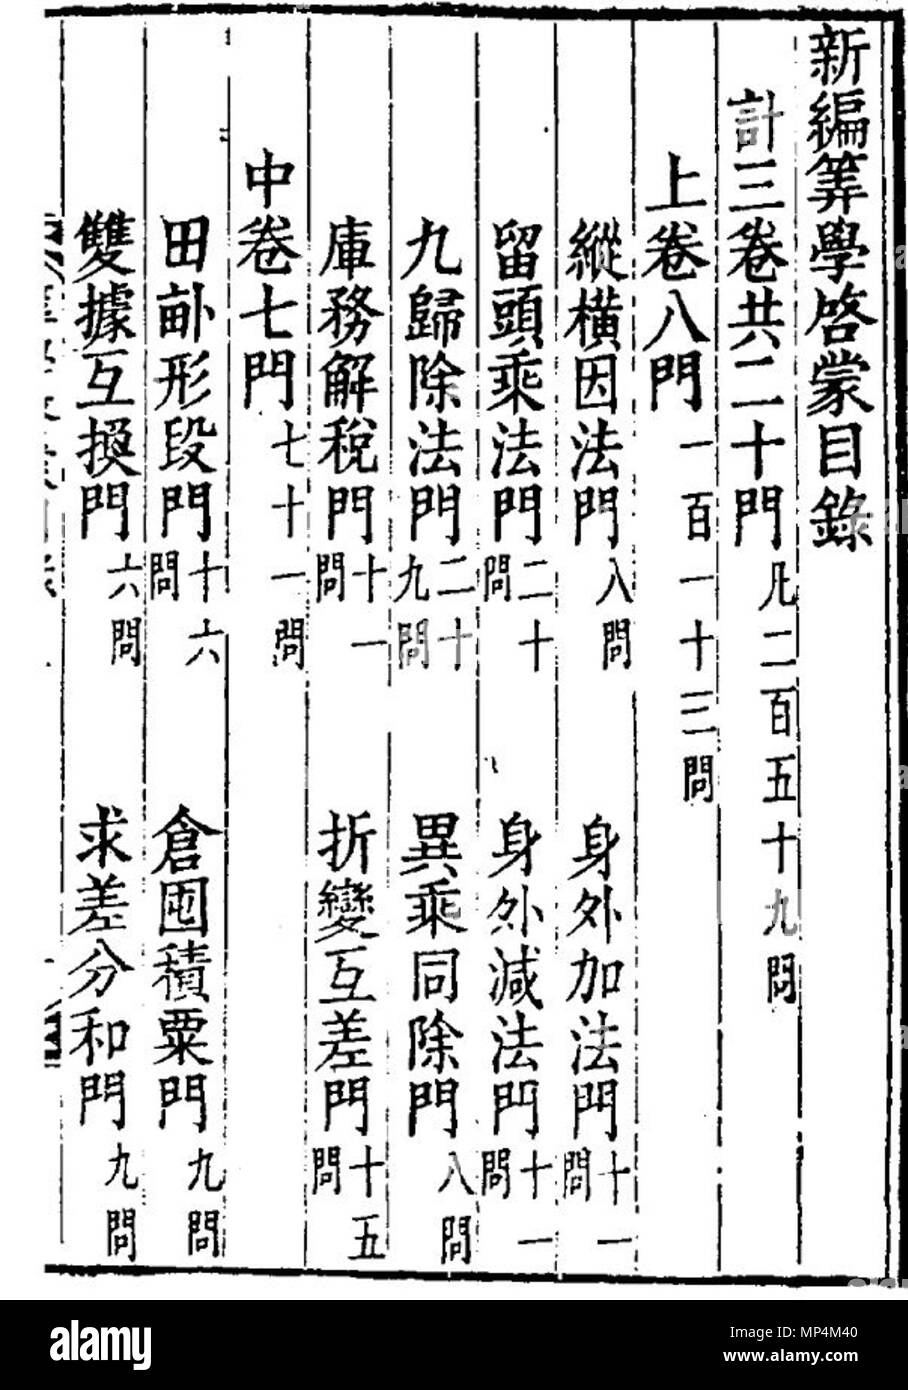 新編筭學啓蒙目錄
計三卷共二十門 凡二百五十九問
上卷八門 一百一十三問
縱橫因法門 八問 身外加法門 十一問
留頭乘法門 二十問 身外減法門 十一問
九歸除法門 二十九問 異乘同除門 八問
庫務解稅門 十一問 折變互差門 十五問
中卷七門 七十一問
田畝形段門 十六問 倉囤積粟門 九問
雙據互換門 六問 求差分和門 九問
alamy
Image ID: MP4M40
www.alamy.com